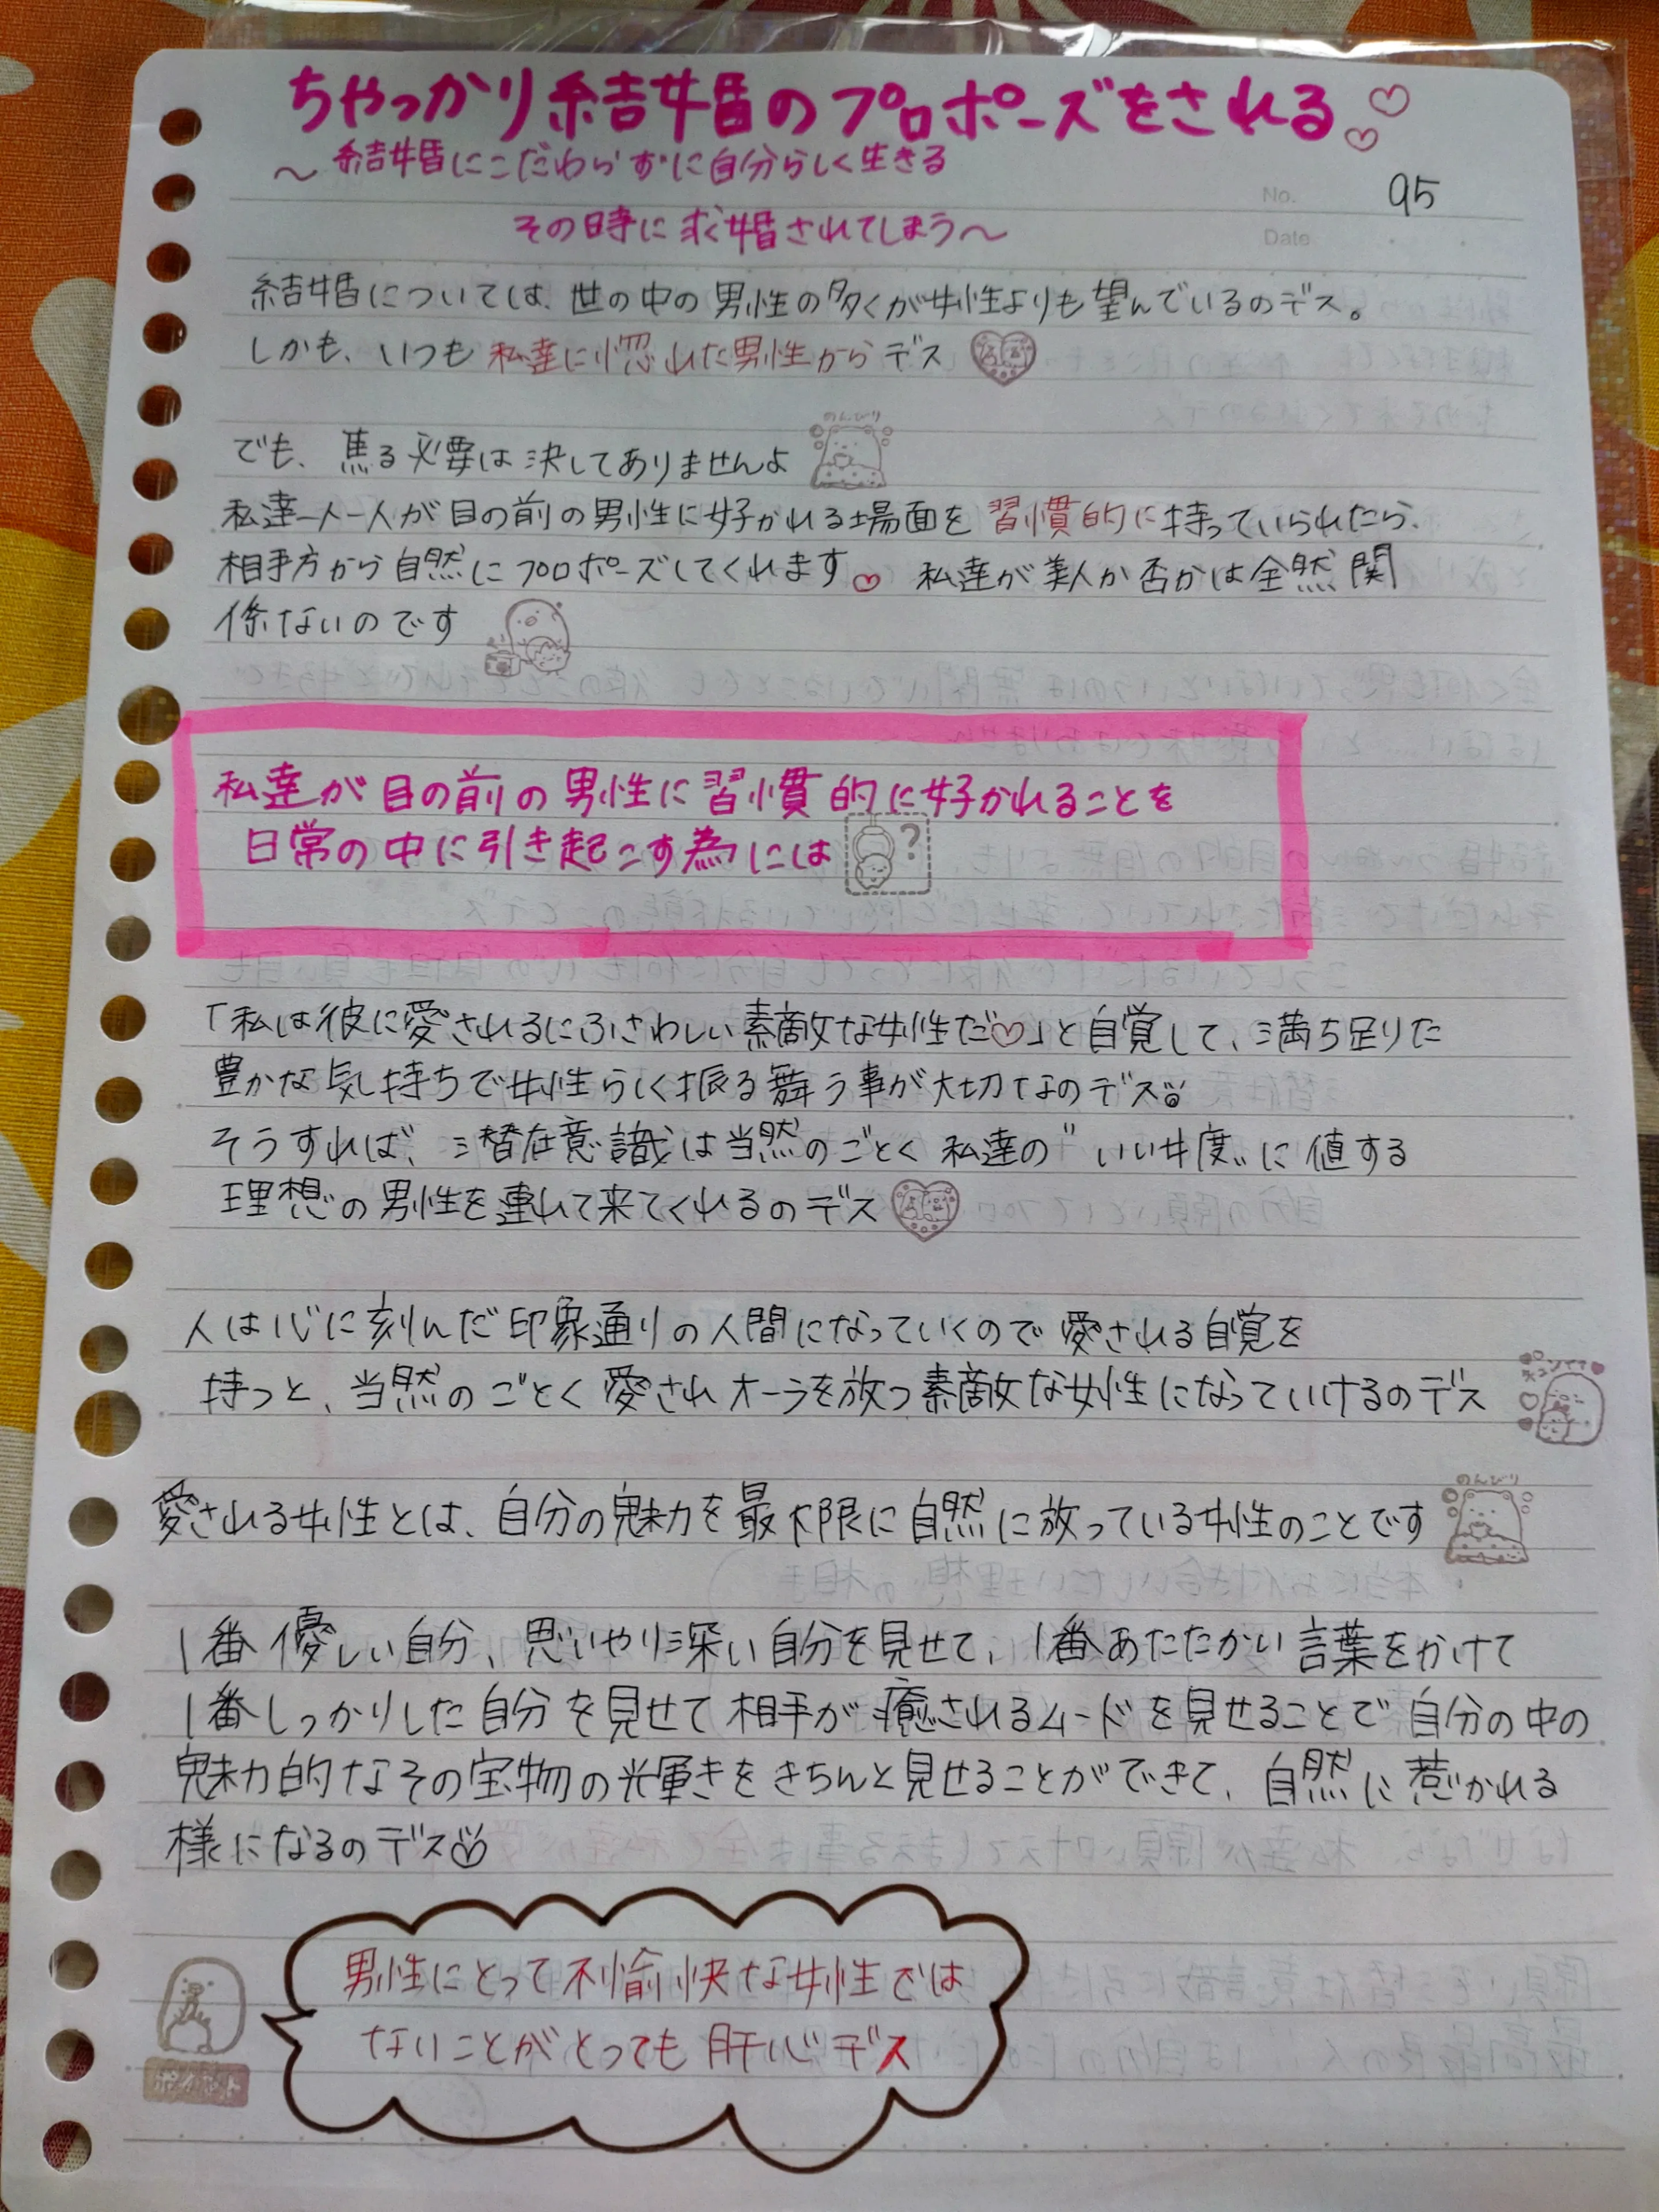 ちゃっかり結婚のプロポーズをされる♡♡
～結婚にこだわらずに自分らしく生きる
その時に求婚されてしまう～
No. 95
Date
結婚については、世の中の男性の多くが女性よりも望んでいるのデス。
しかも、いつも私達に惚れた男性からデス
でも、焦る必要は決してありませんよ
のんびり
私達一人一人が目の前の男性に好かれる場面を習慣的に持っていられたら、
相手方から自然にプロポーズしてくれます♡ 私達が美人か否かは全然関
係ないのです
私達が目の前の男性に習慣的に好かれることを
日常の中に引き起こす為には
?
「私は彼に愛されるにふさわしい素敵な女性だ♡」と自覚して、満ち足りた
豊かな気持ちで女性らしく振る舞う事が大切なのデス
そうすれば、潜在意識は当然のごとく私達の〝いい女度〟に値する
理想の男性を連れて来てくれるのデス
人は心に刻んだ印象通りの人間になっていくので愛される自覚を
持つと、当然のごとく愛されオーラを放つ素敵な女性になっていけるのデス
愛される女性とは、自分の魅力を最大限に自然に放っている女性のことです
のんびり
1番優しい自分、思いやり深い自分を見せて、1番あたたかい言葉をかけて
1番しっかりした自分を見せて相手が癒されるムードを見せることで自分の中の
魅力的なその宝物の光輝きをきちんと見せることができて、自然に惹かれる
様になるのデス
男性にとって不愉快な女性では
ないことがとっても肝心デス
ポイント